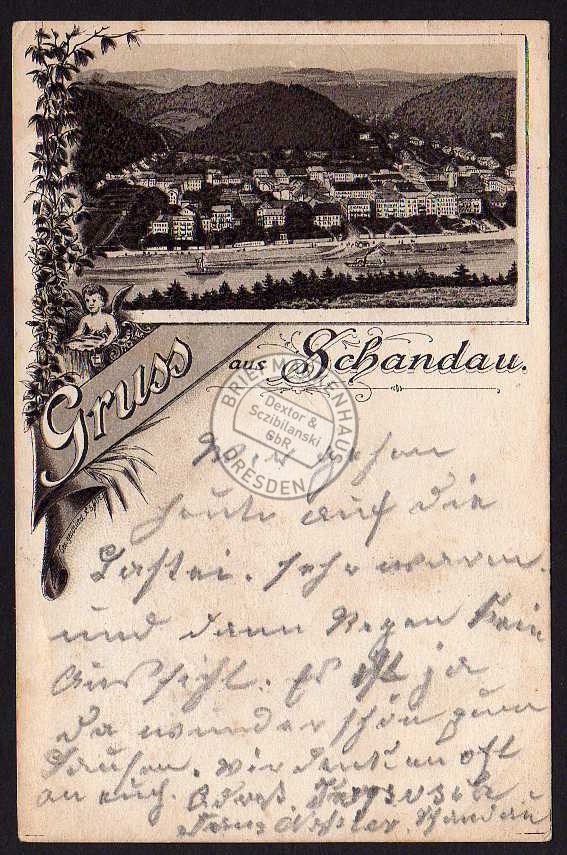 Gruss aus Schandau.
BRIEFMARKENHAUS
Dextor &
Sczibilanski
GbR.
DRESDEN
Wir gehen
heute auf die
Bastei. sehr warm
und dann Regen kein
Aussicht. Es ist ja
da wunderschön zum
Laufen. wir denken oft
an euch. Adreß.
Schandau